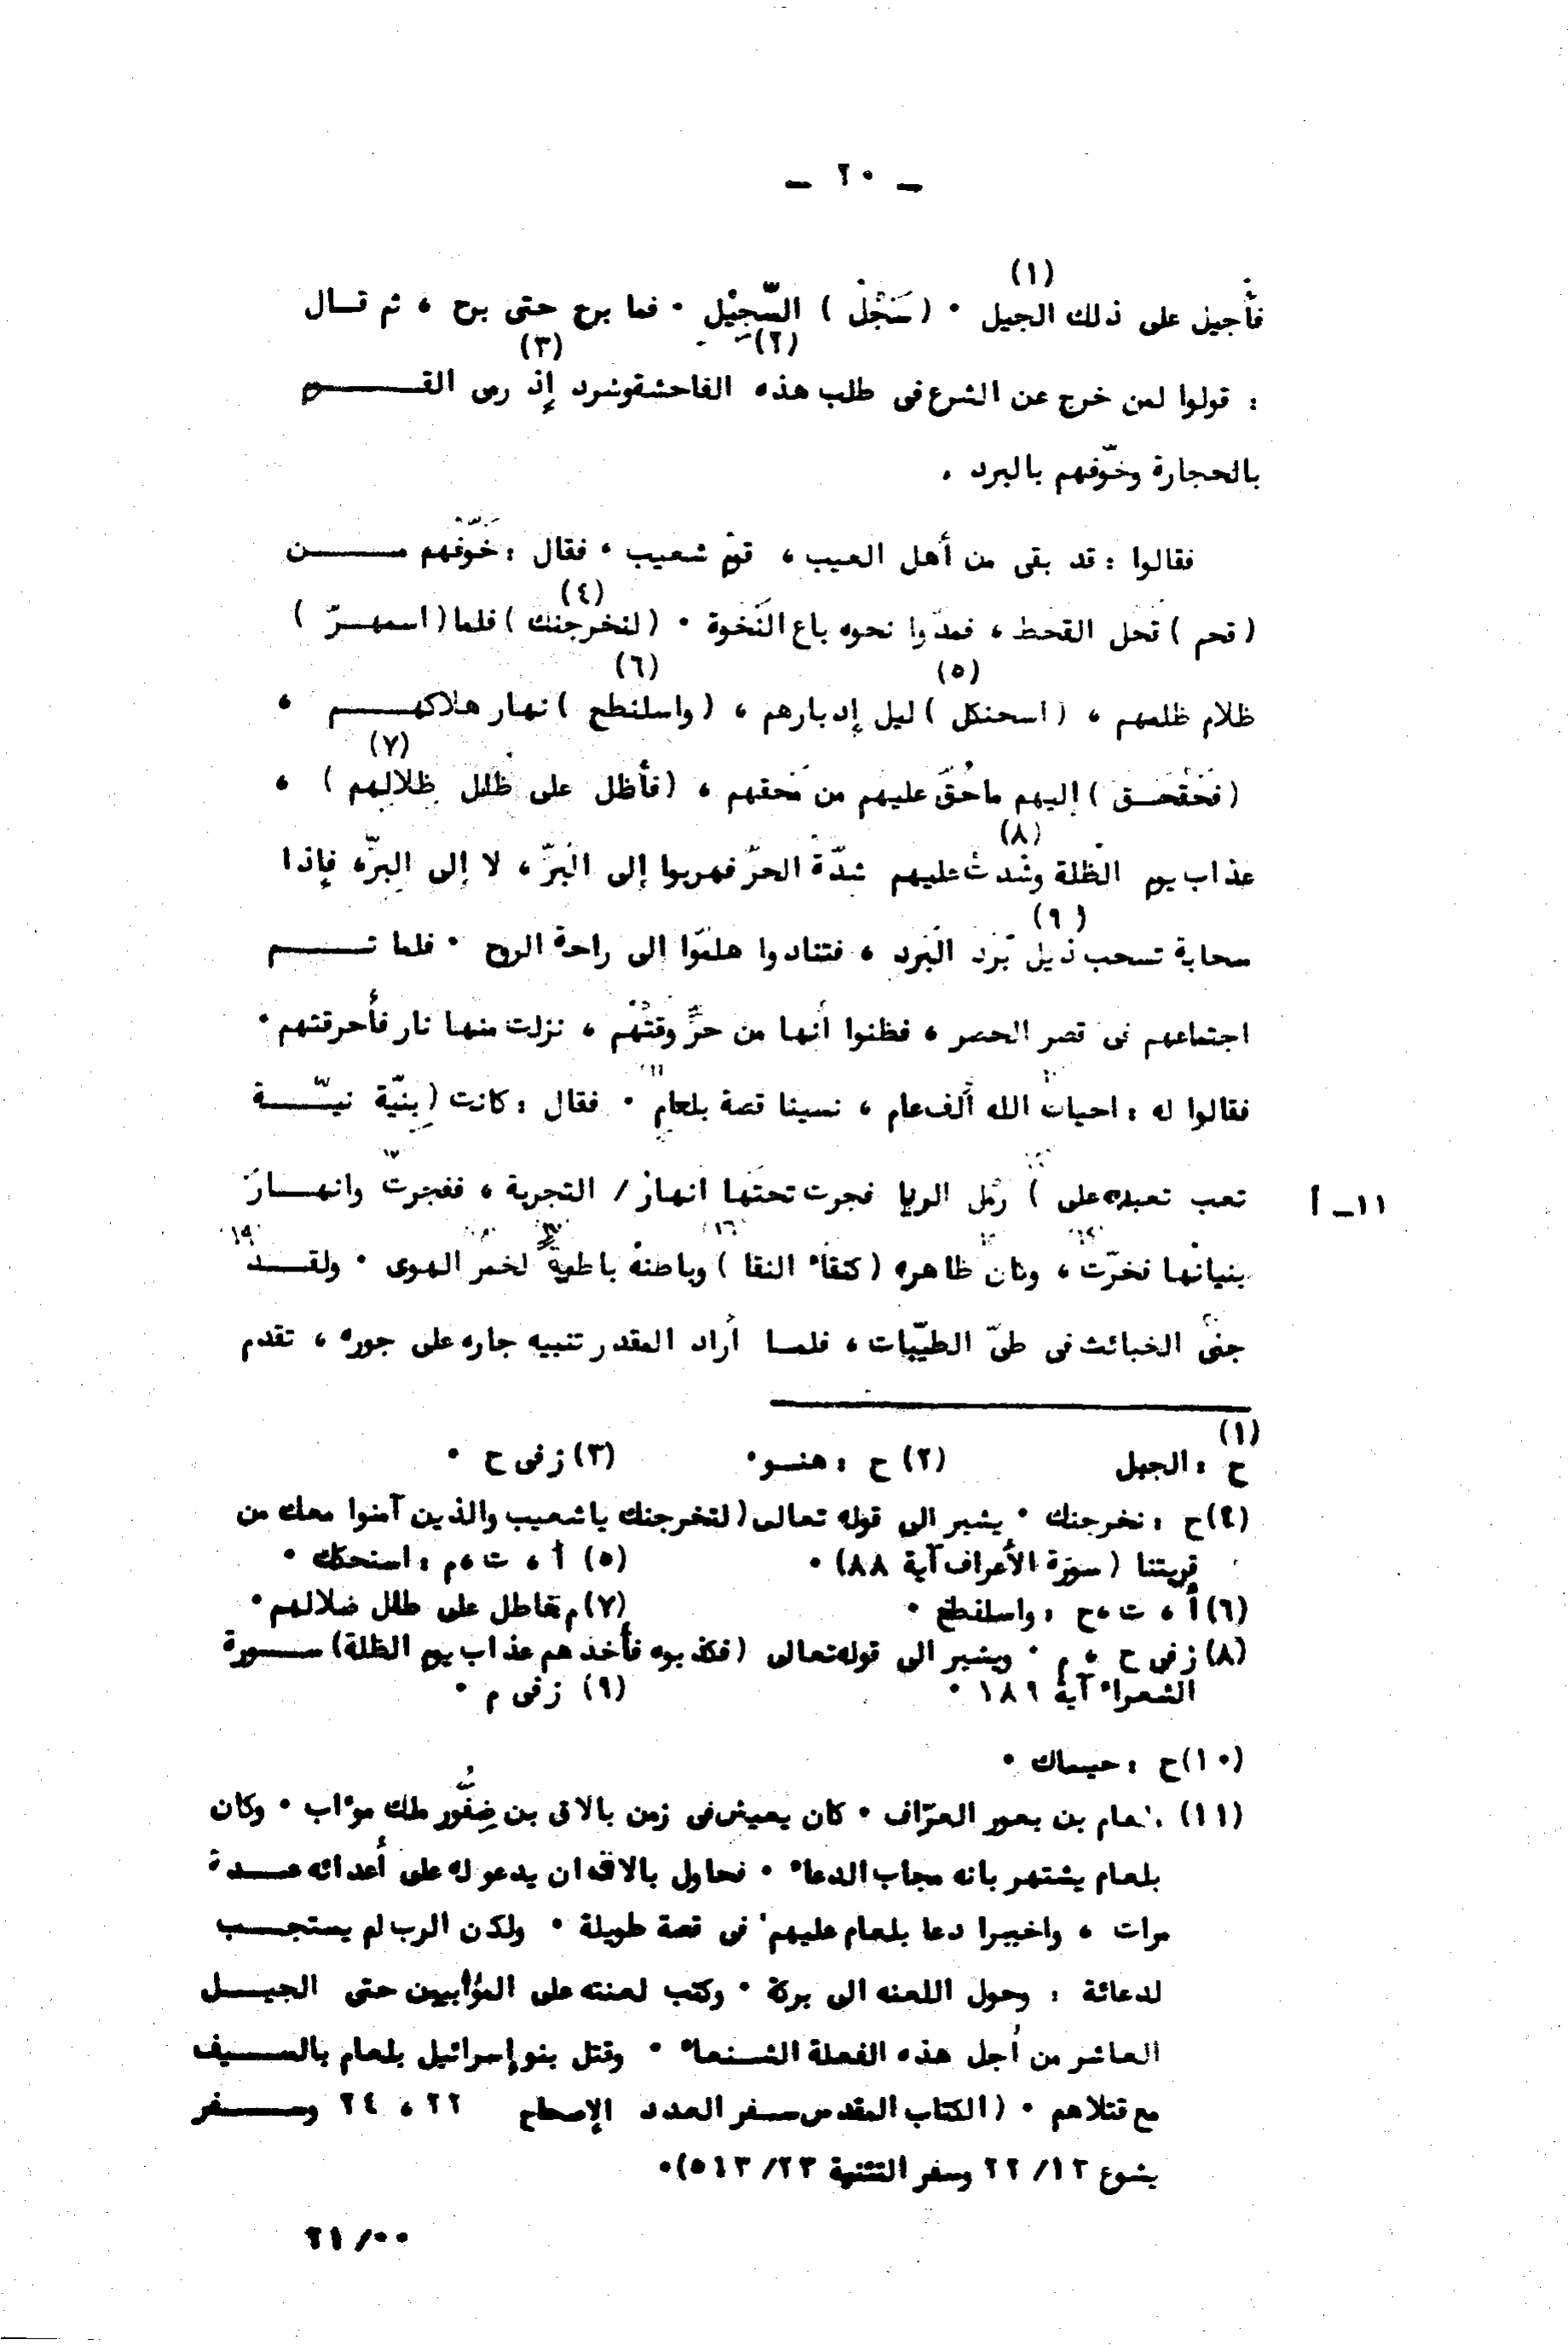 ـ ٢٠ ـ
(١)
فأُجيل على ذلك الجيل ٠ ( سَنَجْلْ ) السّجِيْل ٠ فما برح حتى برح ، ثم قـال
(٢) (٣)
: قولوا لمن خرج عن الشرع فى طلب هذه الفاحشة وشرد إذ رمى القــــــم
بالحجارة وخوّفهم بالبرد .
فقالوا : قد بقى من أهل العيب ، قوم شعيب ٠ فقال : خَوّفهم مــــــن
(٤)
( قحم ) قحل القحط ، فمدّوا نحوه باع النَخوة ٠ ( لنخرجنك ) فلما ( اسمهـرّ )
(٥) (٦)
ظلام ظلمهم ، ( اسحنكل ) ليل إدبارهم ، ( واسلنطح ) نهار هلاكهـــــم ،
(٧)
( فحَقْحَـق ) إليهم ماحُقّ عليهم من مَحقهم ، ( فأظل على ظُلل ظلالهم ) ،
(٨)
عذاب يوم الظلة وشُدت عليهم شدّة الحرّ فهربوا إلى البَرّ ، لا إلى البِرّ، فإذا
(٩)
سحابة تسحب ذيل بَرْد البَرد ، فتنادوا هلمّوا الى راحة الروح ٠ فلما تــــــم
اجتماعهم فى قصر الحصر ، فظنوا أنها من حرٍّ وقتْهُم ، نزلت منها نار فأحرقتهم ٠
١٠ ١١
فقالوا له : احياك الله ألف عام ، نسينا قصة بلعام ٠ فقال : كانت ( بِنيّة نيـّــة
تعب تعبده على ) رمل الريا فجرت تحتها انهار / التجربة ، ففجرتْ وانهــارَ
١١ ـ أ
١٦ ١٩
بنيانها فخرّت ، وكان ظاهره ( كنقاء النقا ) وباطنهُ باطية لخمر الهوى ٠ ولقـــد
جنىُ الخبائث فى طىّ الطيّبات ، فلمـا أراد المقدر تنبيه جاره على جوره ، تقدم
(١)
ح : الجبل (٢) ح : هنـو٠ (٣) ز فى ح ٠
(٤) ح : نخرجنك ٠ يشير الى قوله تعالى ( لنخرجنك ياشعيب والذين آمنوا معك من
قريتنا ( سورة الأعراف آية ٨٨) ٠ (٥) أ ، ت ،م : استحكك ٠
(٦) أ ، ت ،ح : واسلفطح ٠ (٧) م فقاطل على طلل ضلالهم ٠
(٨) ز فى ح ، م ٠ ويشير الى قوله تعالى ( فكذبوه فأخذهم عذاب يوم الظلة) ســـورة
الشعراء آية ١٨٩ ٠ (٩) ز فى م ٠
(١٠) ح : حيماك ٠
(١١) بلعام بن بعور العرّاف ٠ كان يعيش فى زمن بالاق بن ضِفُّور ملك موءاب ٠ وكان
بلعام يشتهر بانه مجاب الدعاء ٠ فحاول بالاقه ان يدعو له على أعدائه عــدة
مرات ، واخييرا دعا بلعام عليهم فى قصة طويلة ٠ ولكن الرب لم يستجــب
لدعائة : وحول اللعنه الى بركة ٠ وكتب لعنته على المؤابيين حتى الجيــل
العاشر من أجل هذه الفعلة الشنعاء ٠ وقتل بنو إسرائيل بلعام بالســيف
مع قتلاهم ٠ ( الكتاب المقدس سفر العدد الإصحاح ٢٢ ، ٢٤ وســـفر
يشوع ١٢ /٢٢ وسفر التثنية ٢٣ /٥١٣) ٠
٢١/٠٠